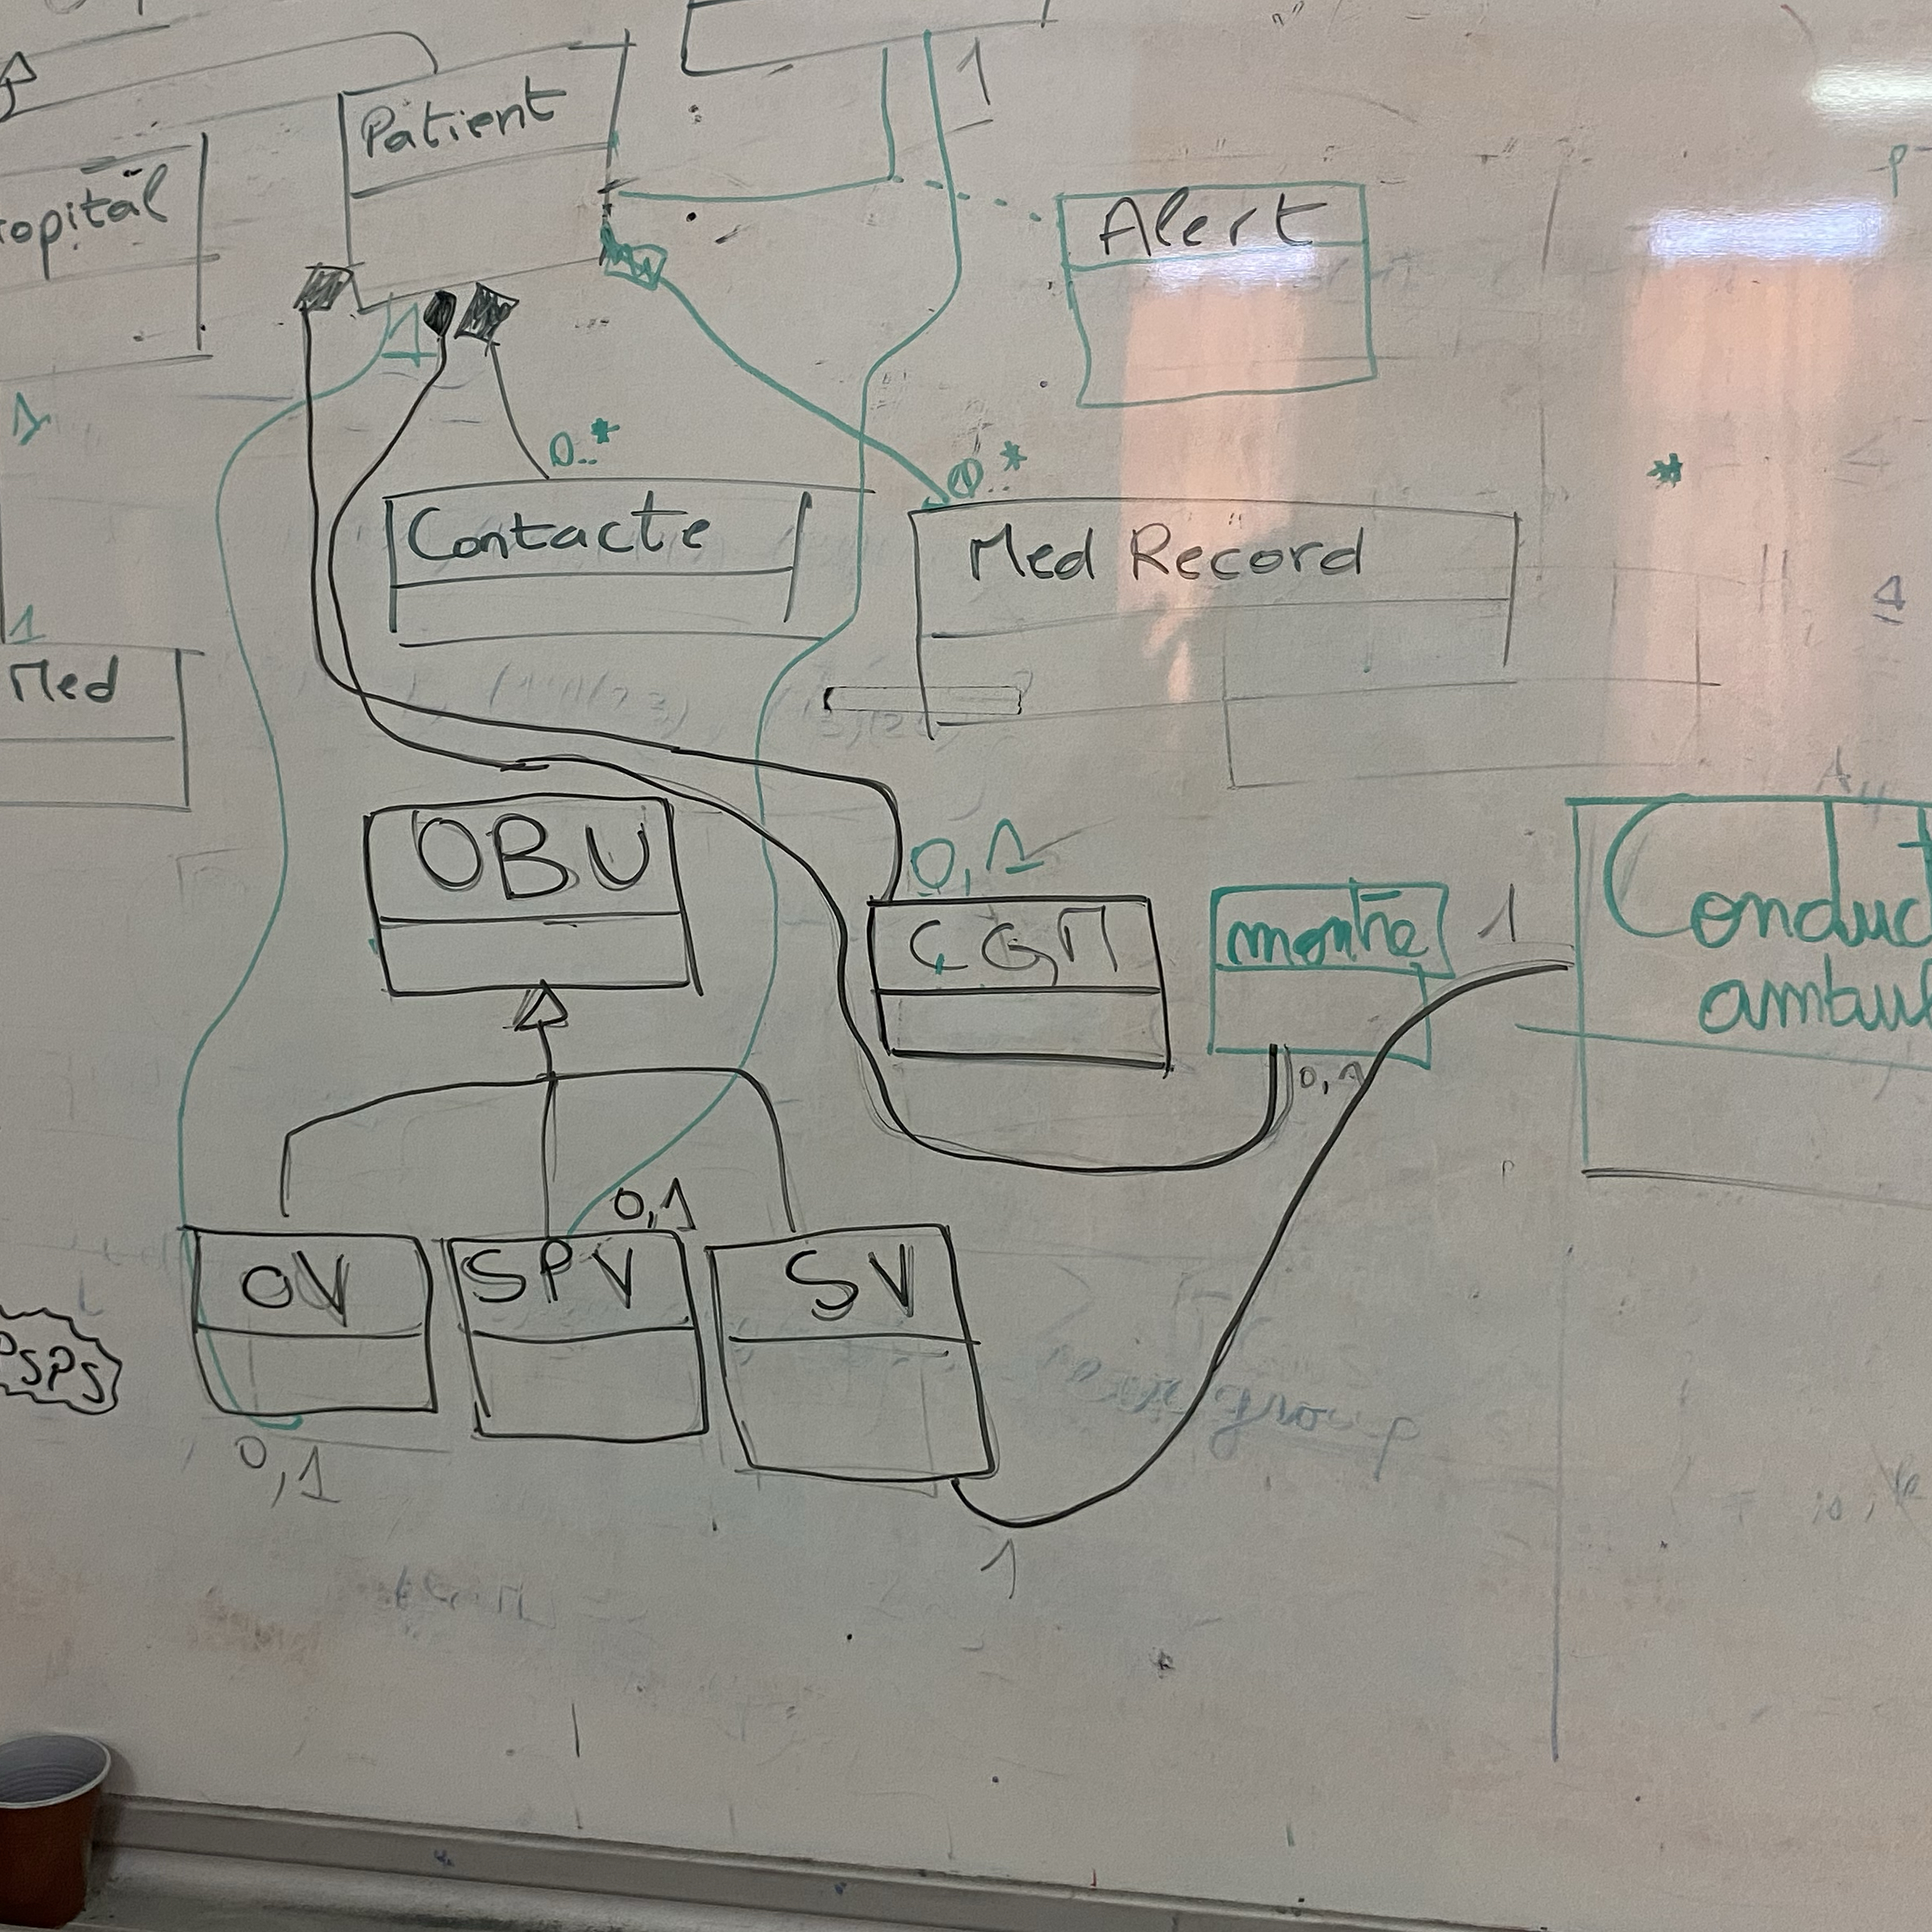 1
Patient
opital
Alert
1
1
0..*
0..*
*
Contacte
Med Record
1
Med
OBU
0,1
CGM
montre
1
Conduc
ambul
0,1
0,1
OV
SPV
SV
PSPS
group
0,1
1